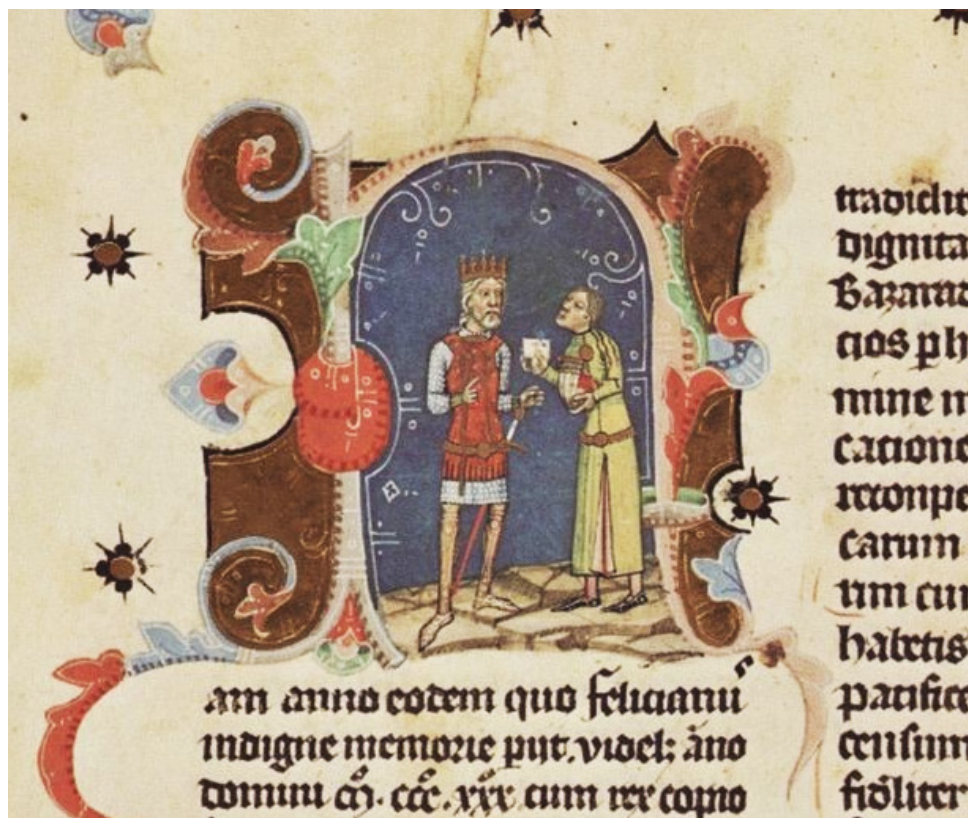 am anno eodem quo felicianus
indigne memorie piit. videl; āno
domini m̊. ccc̊. xxx̊ cum rex copio
tradidit
dignita
Bazarat
cios ph
mine m
catione
reconpe
carum
tim cum
habetis
pacifice
censum
fid̄liter